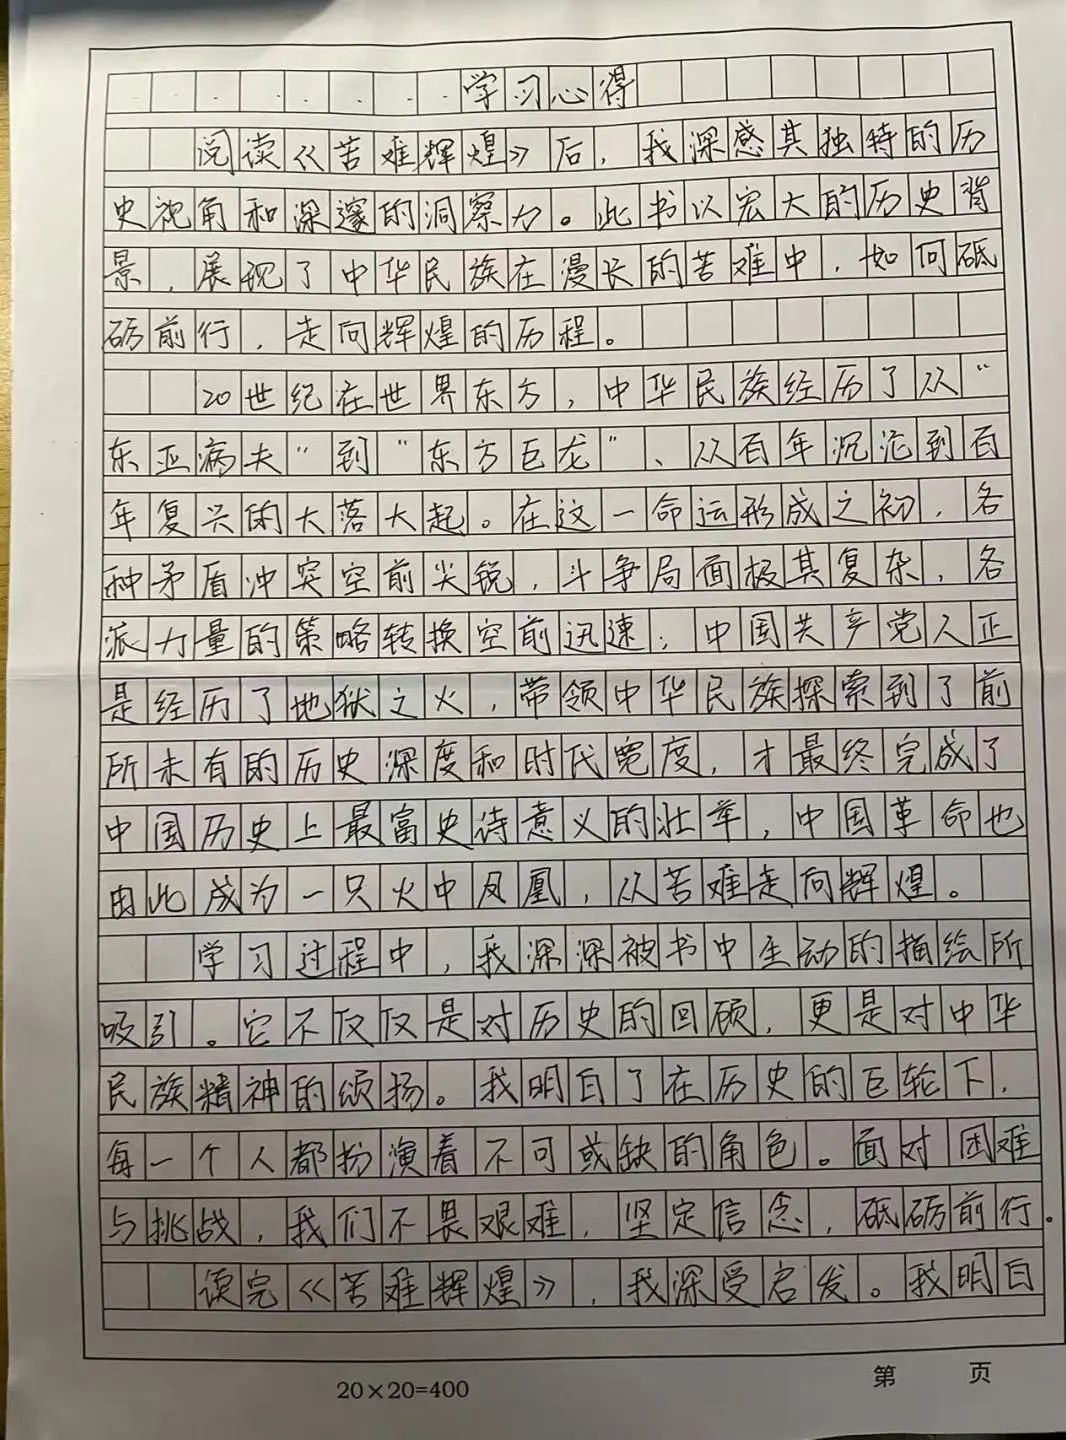 学习心得
阅读《苦难辉煌》后，我深感其独特的历
史视角和深邃的洞察力。此书以宏大的历史背
景，展现了中华民族在漫长的苦难中，如何砥
砺前行，走向辉煌的历程。
20世纪在世界东方，中华民族经历了从“
东亚病夫”到“东方巨龙”、从百年沉沦到百
年复兴的大落大起。在这一命运形成之初，各
种矛盾冲突空前尖锐，斗争局面极其复杂，各
派力量的策略转换空前迅速；中国共产党人正
是经历了地狱之火，带领中华民族探索到了前
所未有的历史深度和时代宽度，才最终完成了
中国历史上最富史诗意义的壮举，中国革命也
由此成为一只火中凤凰，从苦难走向辉煌。
学习过程中，我深深被书中生动的描绘所
吸引。它不仅仅是对历史的回顾，更是对中华
民族精神的颂扬。我明白了在历史的巨轮下，
每一个人都扮演着不可或缺的角色。面对困难
与挑战，我们不畏艰难，坚定信念，砥砺前行。
读完《苦难辉煌》，我深受启发。我明白
20×20=400
第 页